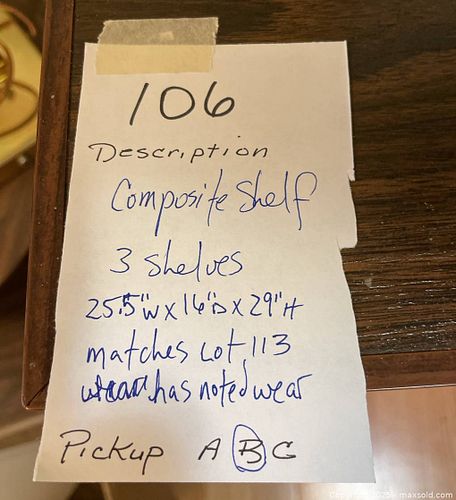 106
Description
Composite Shelf
3 shelves
25.5"W x 16"D x 29"H
matches Lot 113
has noted wear
Pickup A B C